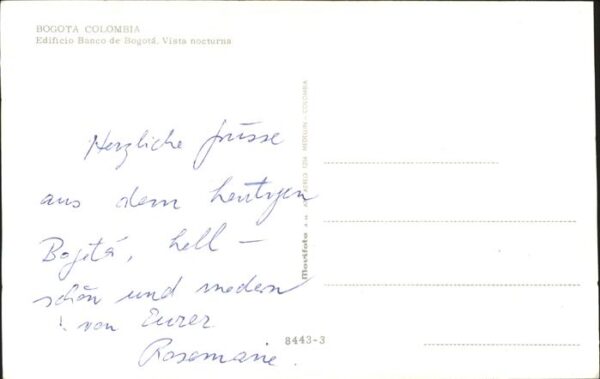 BOGOTA COLOMBIA
Edificio Banco de Bogotá. Vista nocturna
Herzliche Grüsse
aus dem heutigen
Bogotá, hell –
schön und modern
! von Eurer
Rosemarie.
Movifoto MEDELLIN - COLOMBIA
8443-3